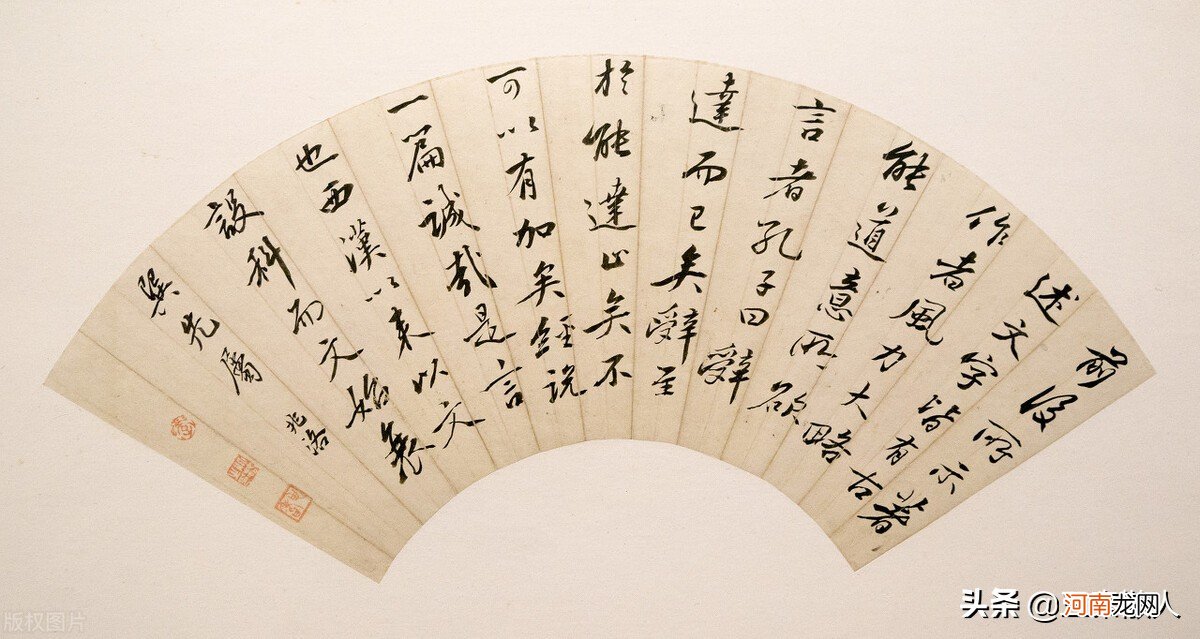 前後所示著
述文字皆有古
作者風力大略
能道意所欲
言者孔子曰辭
達而已矣辭至
於能達止矣不
可以有加矣經説
一篇誠哉是言
也西漢以来以文
設科而文始衰
巽先屬 兆洛
版权图片
头条 @河南龙网人